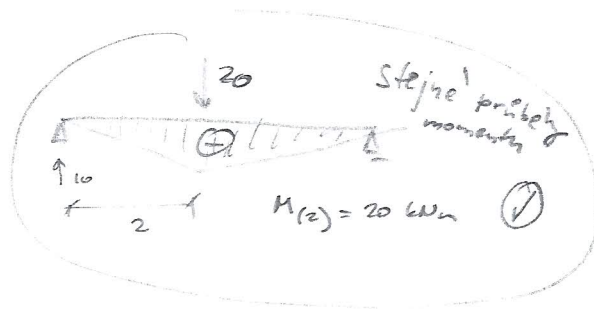 20
Stejné průběhy
momentu
10
2
M(2) = 20 kNm